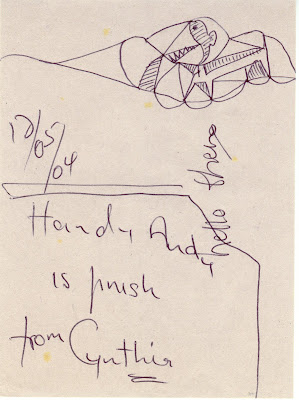 17/05/04
hello there
Handy Andy
is finish
from Cynthia